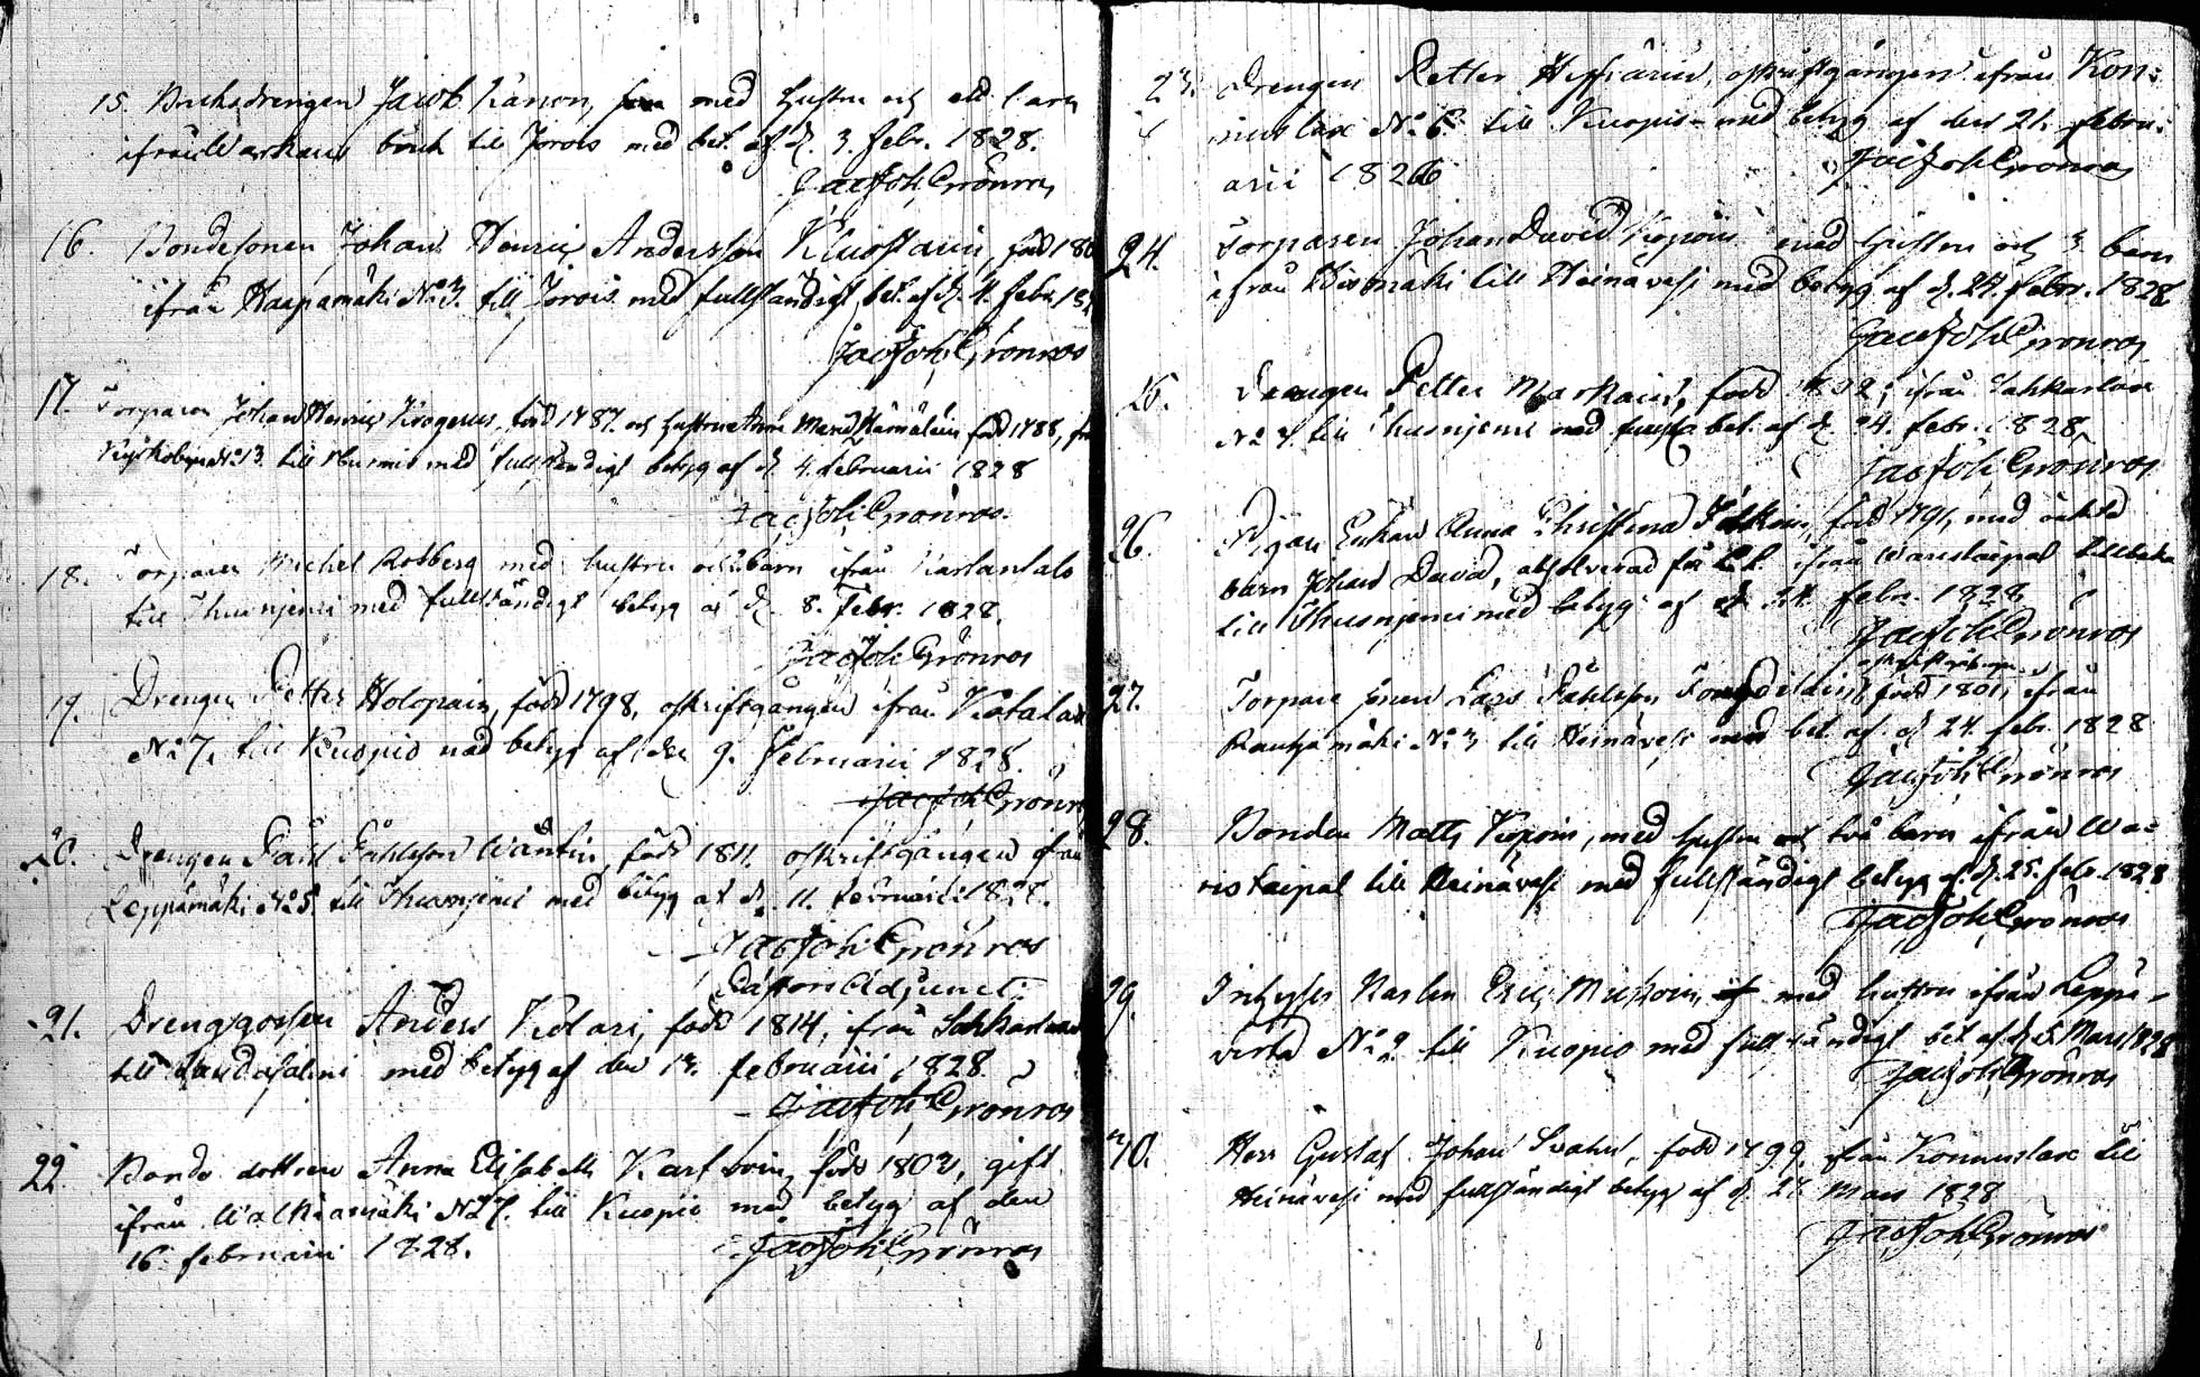 15. Bruksdrengen Jacob Känon, med hustru och ett barn
ifrån Warkaus bruk till Jorois med bet. af d. 3. Febr. 1828.
Jac Joh Grönros
16. Bondesonen Johan Henric Andersson född 180
ifrån Haapamäki No 3. till Jorois med fullständigt bet. af d. 4. Febr. 182
Jac Joh Grönros
17. Torparen Johan Henric Krogerus, född 1787. och hustru Anna Maria Hämäläin född 1788, från
No 13. till med fullständigt betyg af d. 4. februarii 1828
Jac Joh Grönros.
18. Torparen Michel Robberg med hustru och barn ifrån
till Thusnjemi med fullständigt betyg af d. 8. Febr. 1828.
Jac Joh Grönros
19. Drengen Petter Holopain, född 1798, oskriftgången ifrån Kotalax
No 7, till Kuopio med betyg af den 9. Februarii 1828.
Jac Joh Grönros
20. Drengen Påhl Påhlsson Wäntin, född 1811. oskriftgången ifrån
Leppämäki No 5. till Thusnjemi med betyg af d. 11. februarii 1828.
Jac Joh Grönros
Pastors Adjunct.
21. Drenggossen Anders Kolari, född 1814, ifrån Sahkarlax
till Randasalmi med betyg af den 13. februarii 1828.
Jac Joh Grönros
22. Bonde dottren Anna Elisabeth född 1802, gift
ifrån Walkiamäki No 7. till Kuopio med betyg af den
16. februarii 1828.
Jac Joh Grönros
23. Drengen Petter oskriftgången ifrån Kon=
nuslax No 6. till Kuopio med betyg af den 21. Febru=
arii 1828
Jac Joh Grönros
24. Torparen Johan David Koponin med hustru och 3 barn
ifrån till Heinävesi med betyg af d. 24. Febr. 1828
Jac Joh Grönros
25. Drengen Petter Markain, född 1802, ifrån Sahkarlax
No till Thusnjemi med bet. af d. 24. febr. 1828
Jac Joh Grönros
26. Pigan Enkan Anna Christina född 1791, med oäkta
barn Johan David, absolverad ifrån Waristaipal tillbaka
till Thusnjemi med betyg af d. 24. febr. 1828.
Jac Joh Grönros
oskriftgången
27. Torpare sonen Lars Påhlsson född 1801, ifrån
Rautjamäki No 3 till Heinävesi med bet. af d. 24. febr. 1828
Jac Joh Grönros
28. Bonden Matts Koponin, med hustru och två barn ifrån Wa=
ristaipal till Heinävesi med fullständigt betyg af d. 25. febr. 1828
Jac Joh Grönros
29. Inhyses Karlen Eric med hustru ifrån Leppä-
virta No 2. till Kuopio med fullständigt bet. af d. 5. Mars 1828
Jac Joh Grönros
30. Herr Gustaf Johan Svahn, född 1799, ifrån Konnuslax till
Heinävesi med fullständigt betyg af d. 27. Mars 1828
Jac Joh Grönros